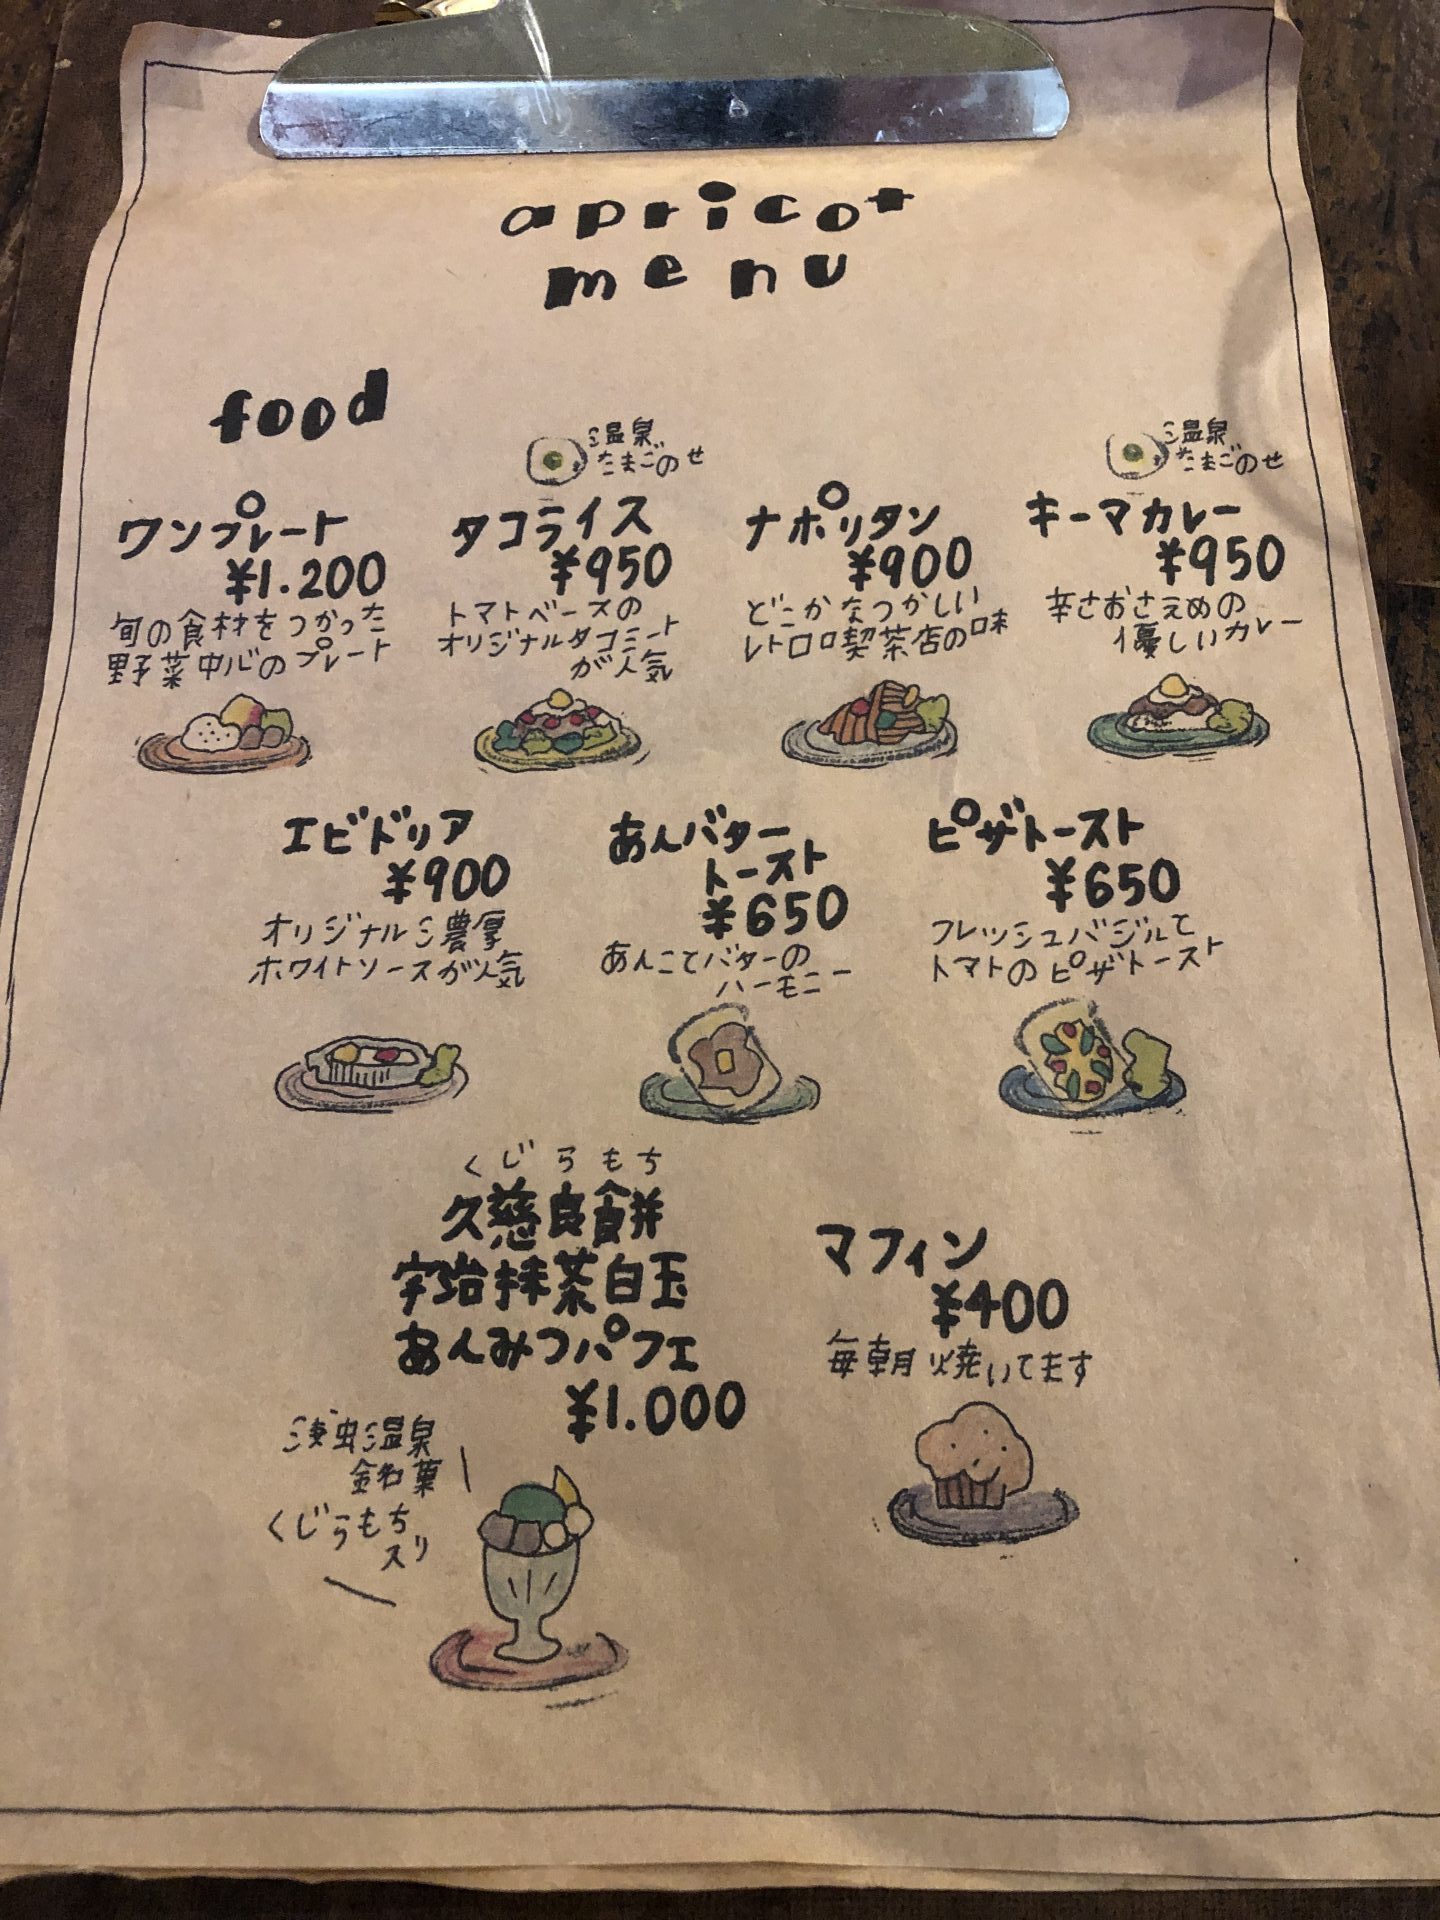 apricot
menu
food
温泉
たまごのせ
ワンプレート
¥1.200
旬の食材をつかった
野菜中心のプレート
タコライス
¥950
トマトベースの
オリジナルタコミート
が人気
ナポリタン
¥900
どこかなつかしい
レトロ喫茶店の味
温泉
たまごのせ
キーマカレー
¥950
辛さおさえめの
優しいカレー
エビドリア
¥900
オリジナル濃厚
ホワイトソースが人気
あんバター
トースト
¥650
あんことバターの
ハーモニー
ピザトースト
¥650
フレッシュバジルと
トマトのピザトースト
くじらもち
久慈良餅
宇治抹茶白玉
あんみつパフェ
¥1.000
浅虫温泉
銘菓
くじらもち
入り
マフィン
¥400
毎朝焼いてます